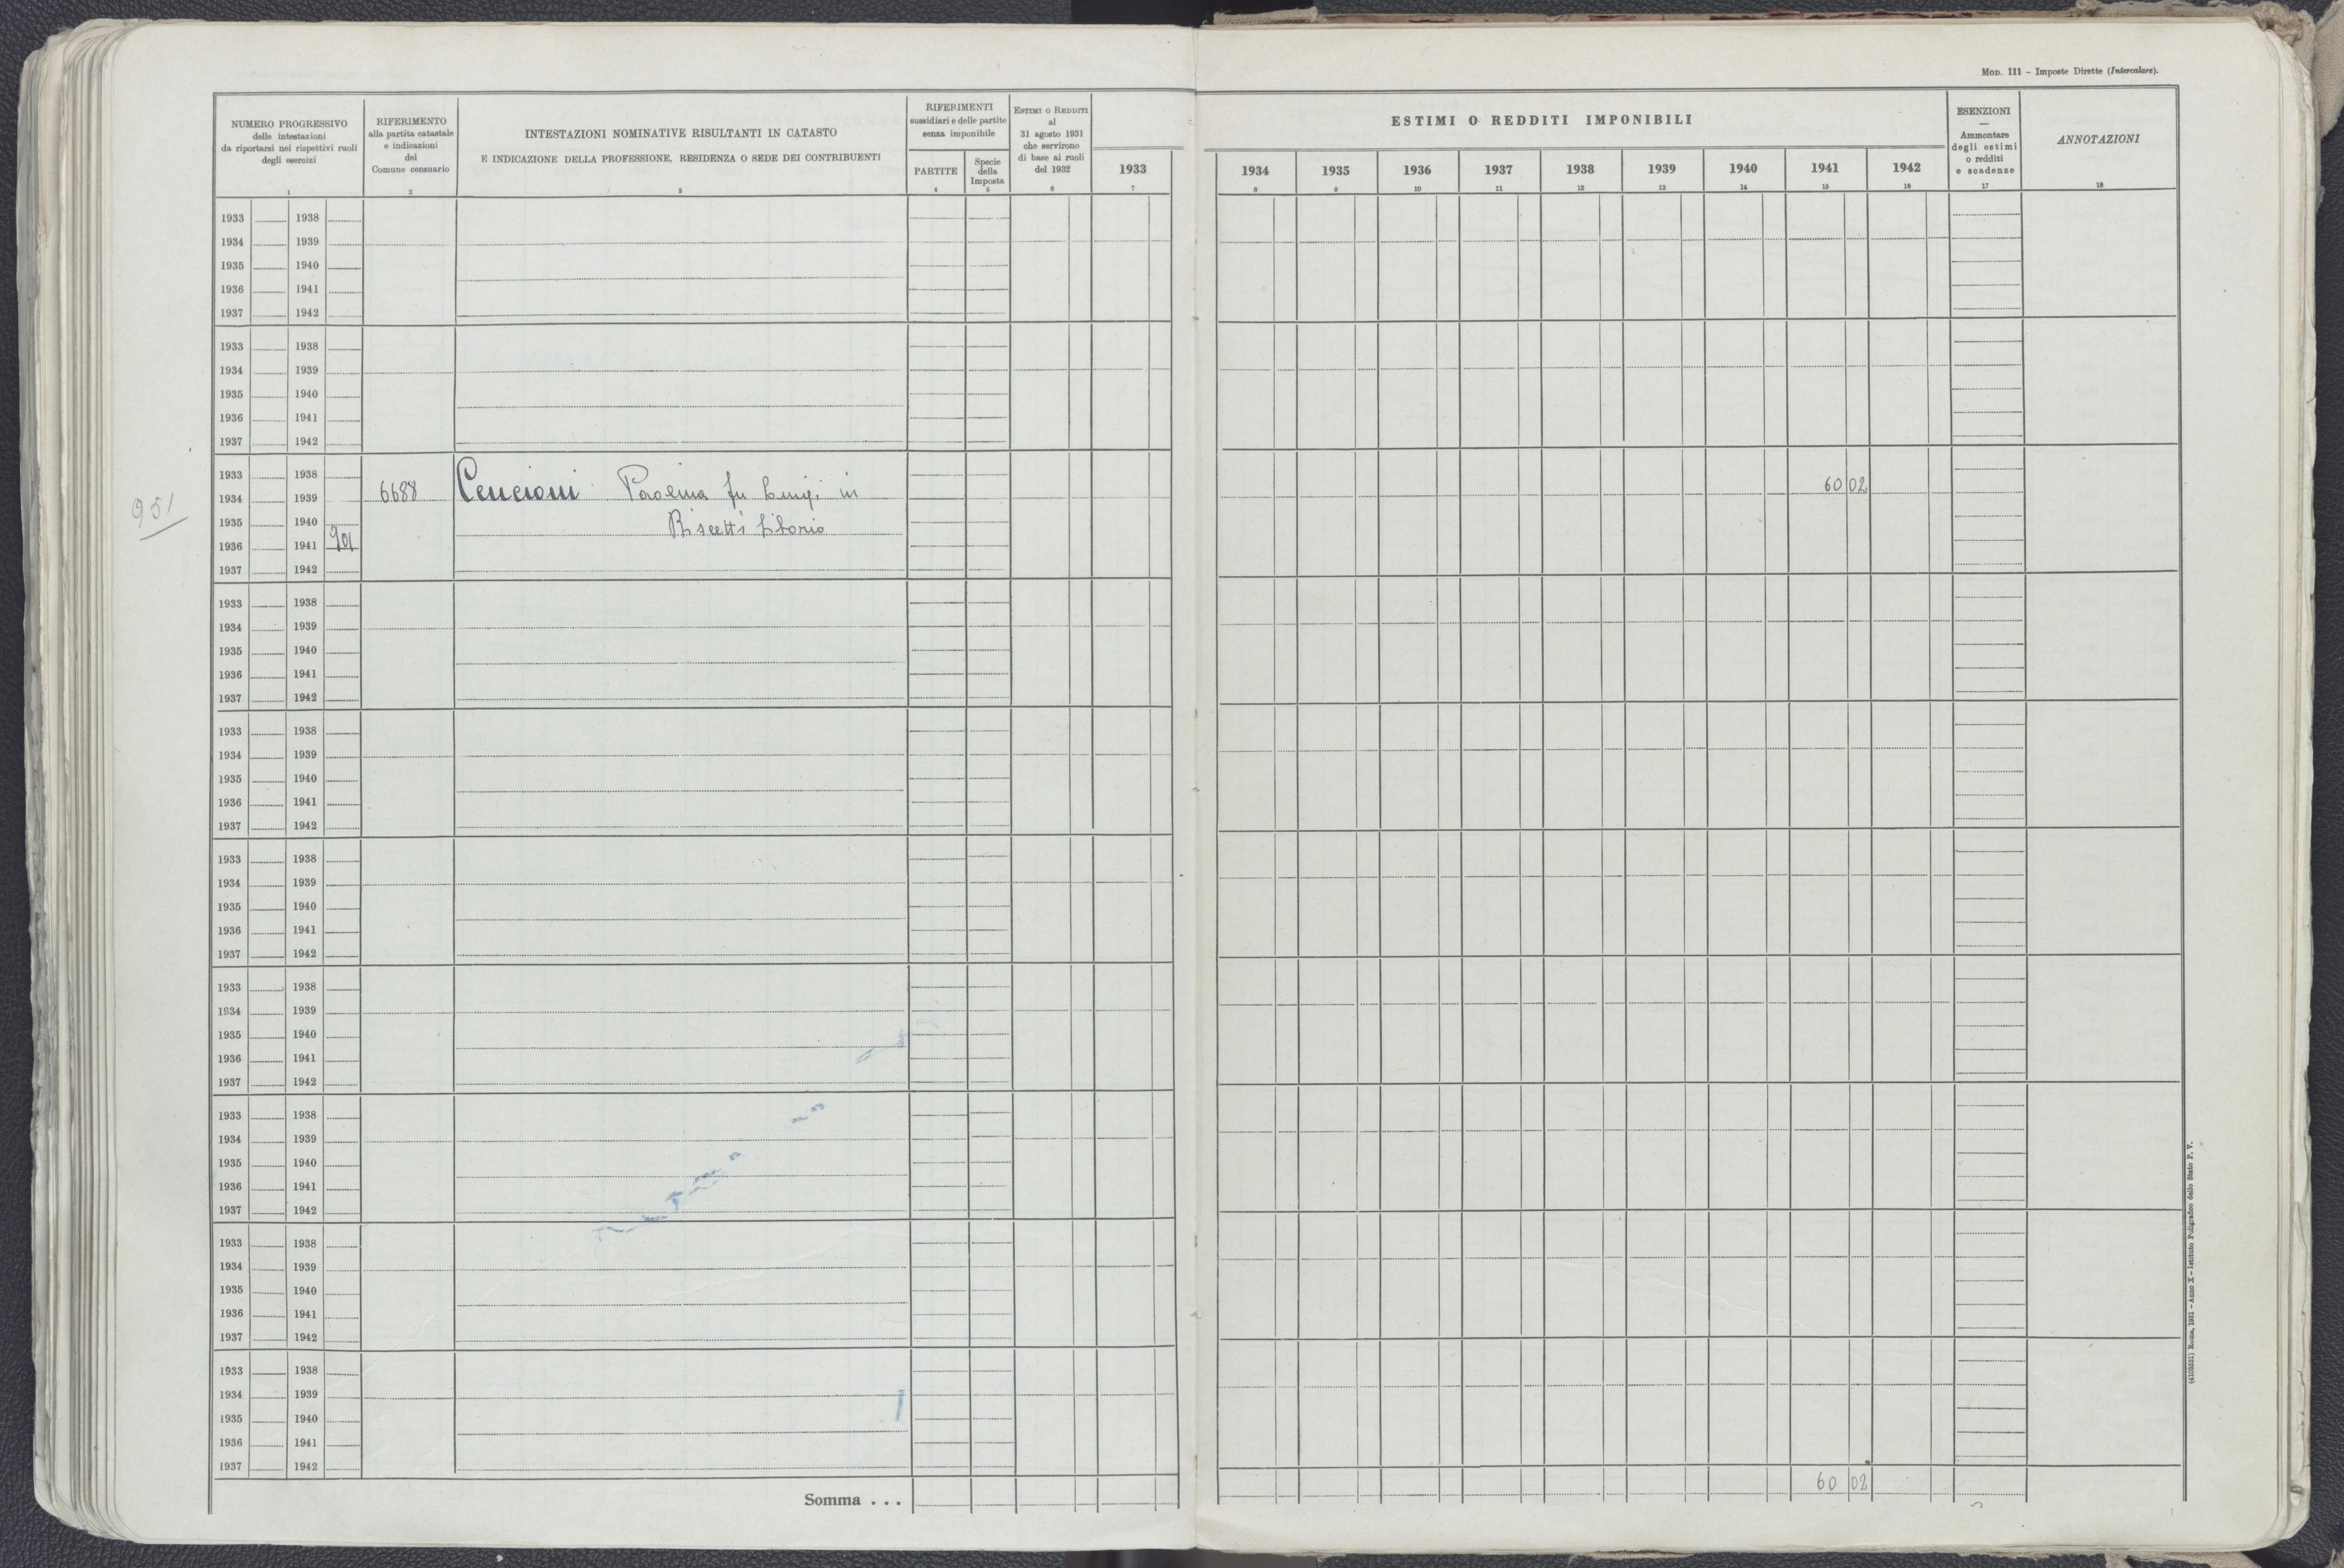 MOD. 111 – Imposte Dirette (Intercalare).
NUMERO PROGRESSIVO
delle intestazioni
da riportarsi nei rispettivi ruoli
degli esercizi
1
RIFERIMENTO
alla partita catastale
e indicazioni
del
Comune censuario
2
INTESTAZIONI NOMINATIVE RISULTANTI IN CATASTO
E INDICAZIONE DELLA PROFESSIONE, RESIDENZA O SEDE DEI CONTRIBUENTI
3
RIFERIMENTI
sussidiari e delle partite
senza imponibile
PARTITE
4
Specie
della
Imposta
5
ESTIMI O REDDITI
al
31 agosto 1931
che servirono
di base ai ruoli
del 1932
6
1933
7
ESTIMI O REDDITI IMPONIBILI
1934 1935 1936 1937 1938 1939 1940 1941 1942
8 9 10 11 12 13 14 15 16
ESENZIONI
—
Ammontare
degli estimi
o redditi
e scadenze
17
ANNOTAZIONI
18
1933 1938
1934 1939
1935 1940
1936 1941
1937 1942
1933 1938
1934 1939
1935 1940
1936 1941
1937 1942
951
1933 1938
1934 1939 6688 Cencioni Paolina fu Luigi in 60 02
1935 1940 Biscetti Liborio
1936 1941 901
1937 1942
1933 1938
1934 1939
1935 1940
1936 1941
1937 1942
1933 1938
1934 1939
1935 1940
1936 1941
1937 1942
1933 1938
1934 1939
1935 1940
1936 1941
1937 1942
1933 1938
1934 1939
1935 1940
1936 1941
1937 1942
1933 1938
1934 1939
1935 1940
1936 1941
1937 1942
1933 1938
1934 1939
1935 1940
1936 1941
1937 1942
1933 1938
1934 1939
1935 1940
1936 1941
1937 1942
Somma . . . 60 02
(4103531) Roma, 1931 – Anno X – Istituto Poligrafico dello Stato P. V.